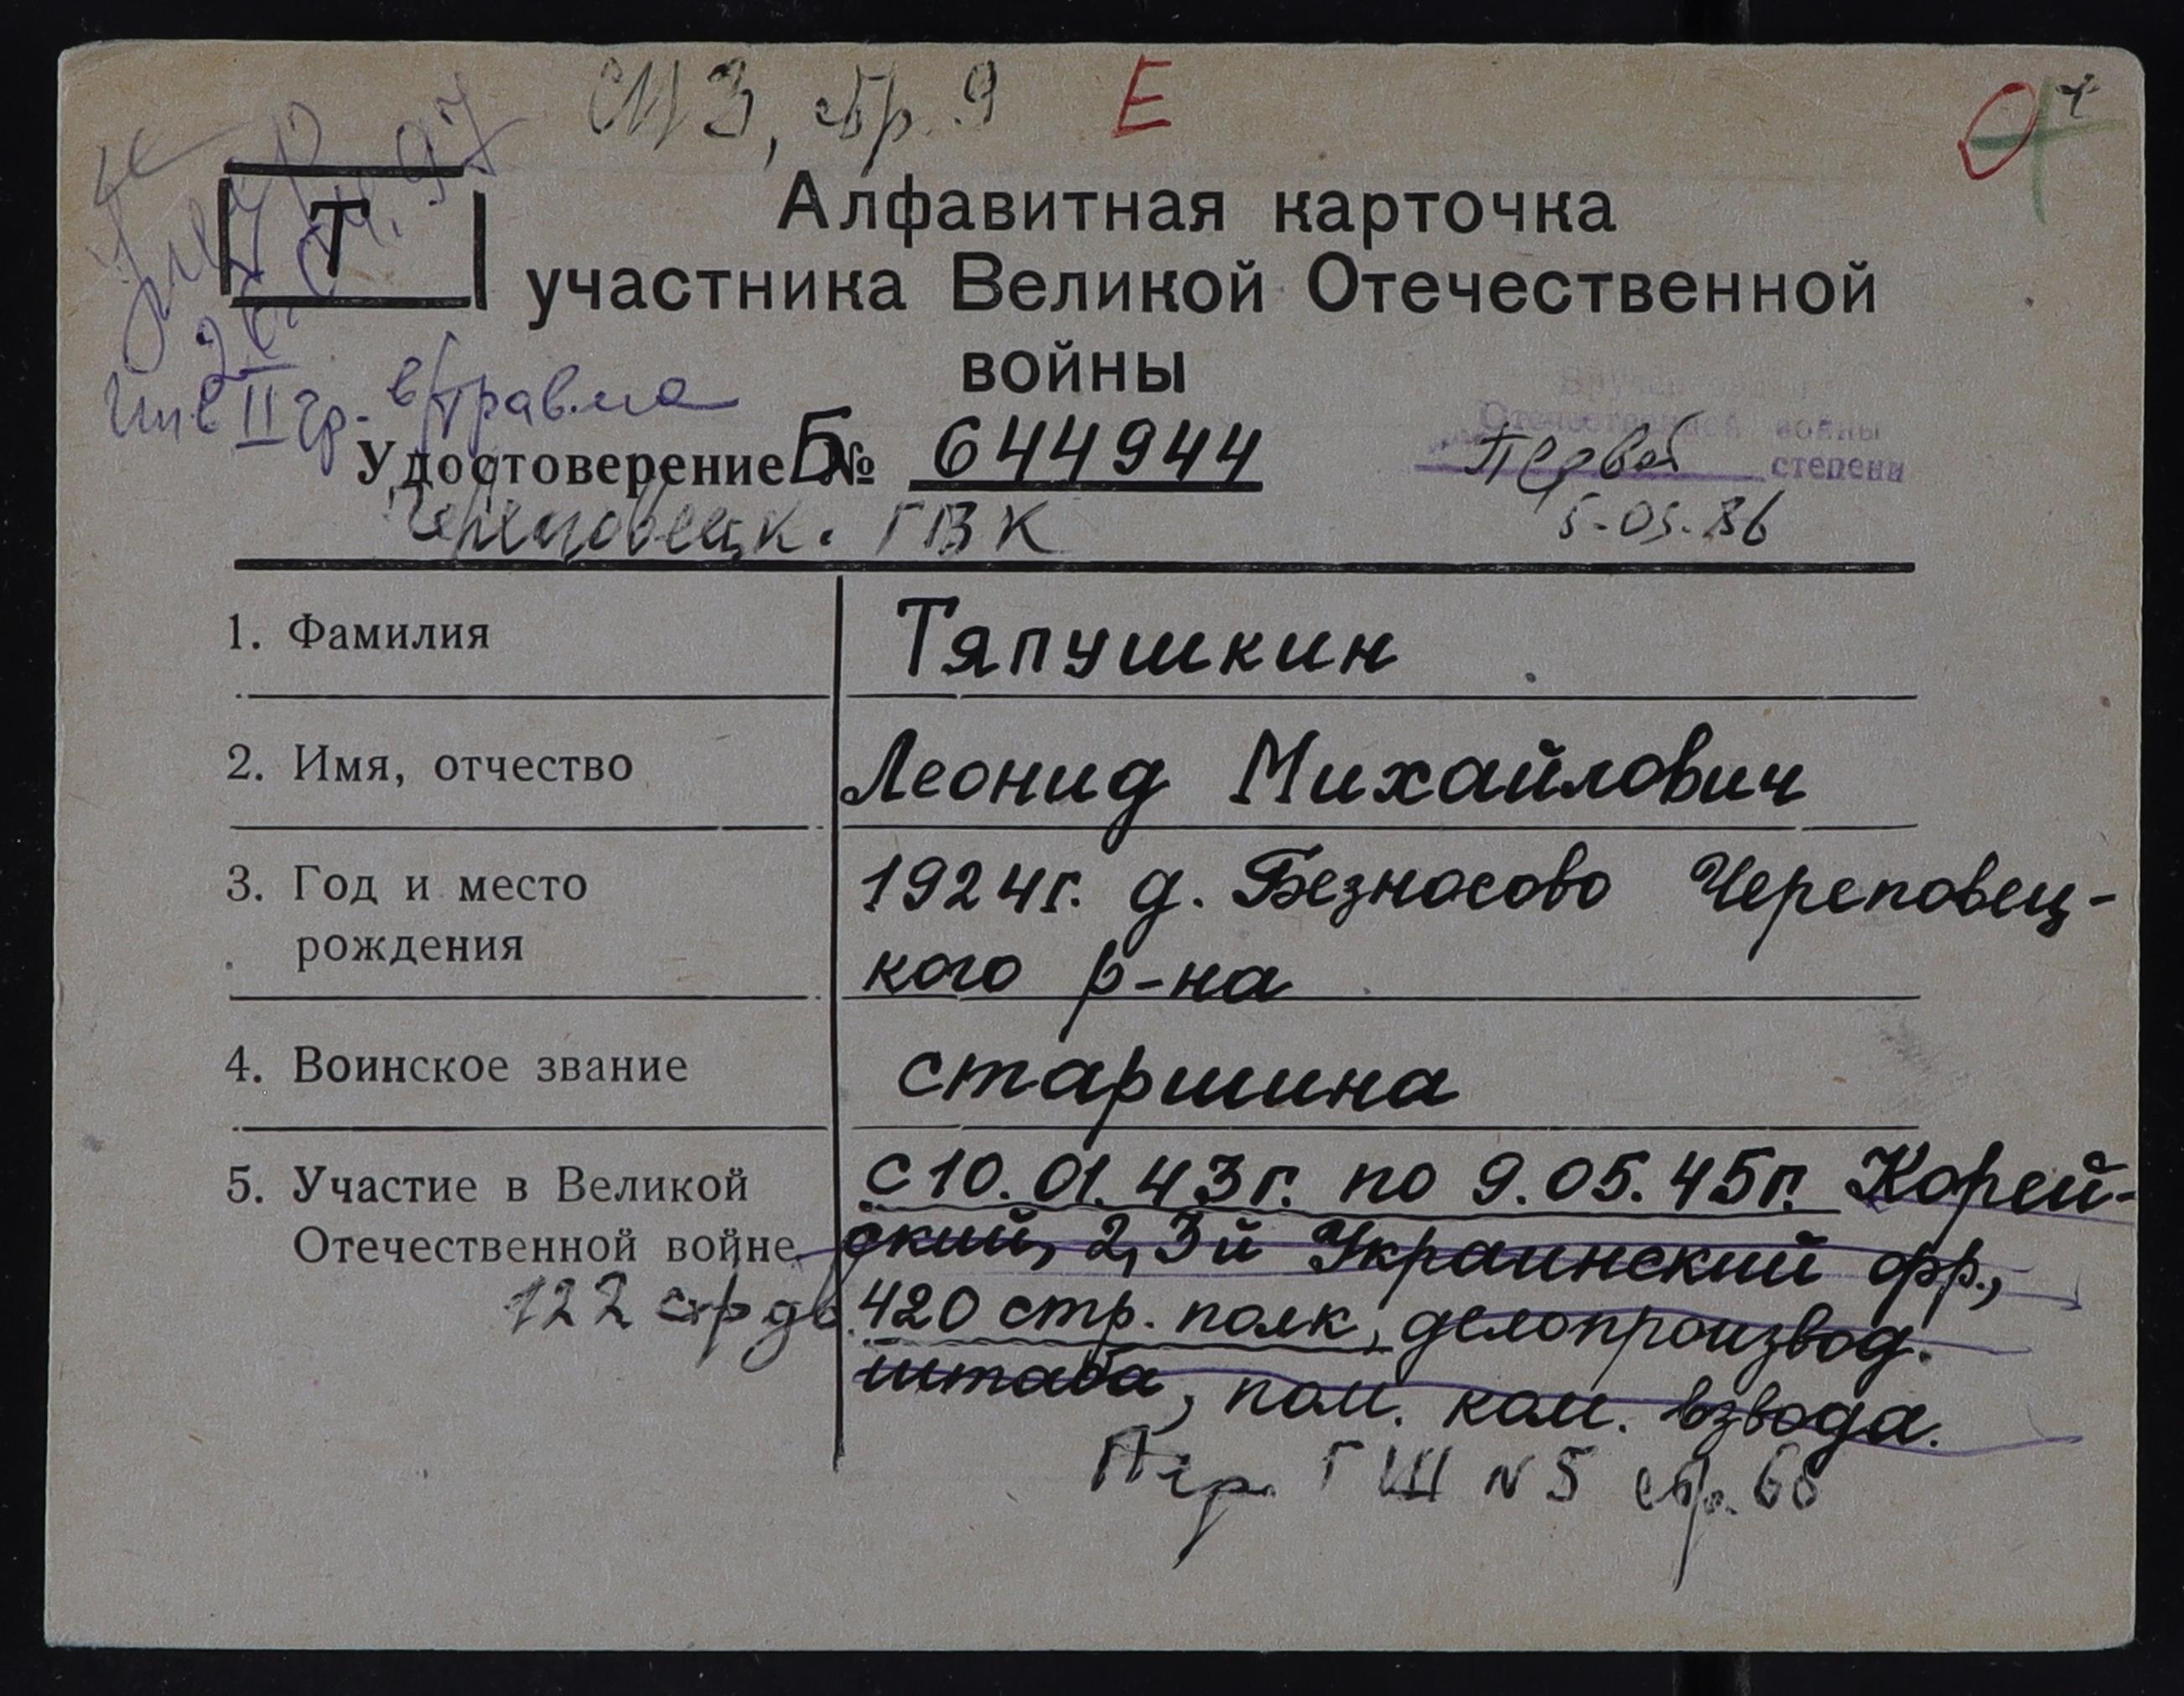 СМЗ, стр. 9 Е
умер
Т
Алфавитная карточка
участника Великой Отечественной
войны
инв II гр. в/травма
Вручен орден
Отечественной войны
Первой степени
5-05-86
Удостоверение Б № 644944
Череповецк. ГВК
1. Фамилия Тяпушкин
2. Имя, отчество Леонид Михайлович
3. Год и место 1924г. д. Безносово Череповец-
рождения кого р-на
4. Воинское звание старшина
5. Участие в Великой с 10.01.43г. по 9.05.45г. Корей-
Отечественной войне ский, 2, 3й Украинский фр.,
122 стр дв. 420 стр. полк, делопроизвод.
штаба, пом. ком. взвода.
Пер. ГШ N 5 стр. 68